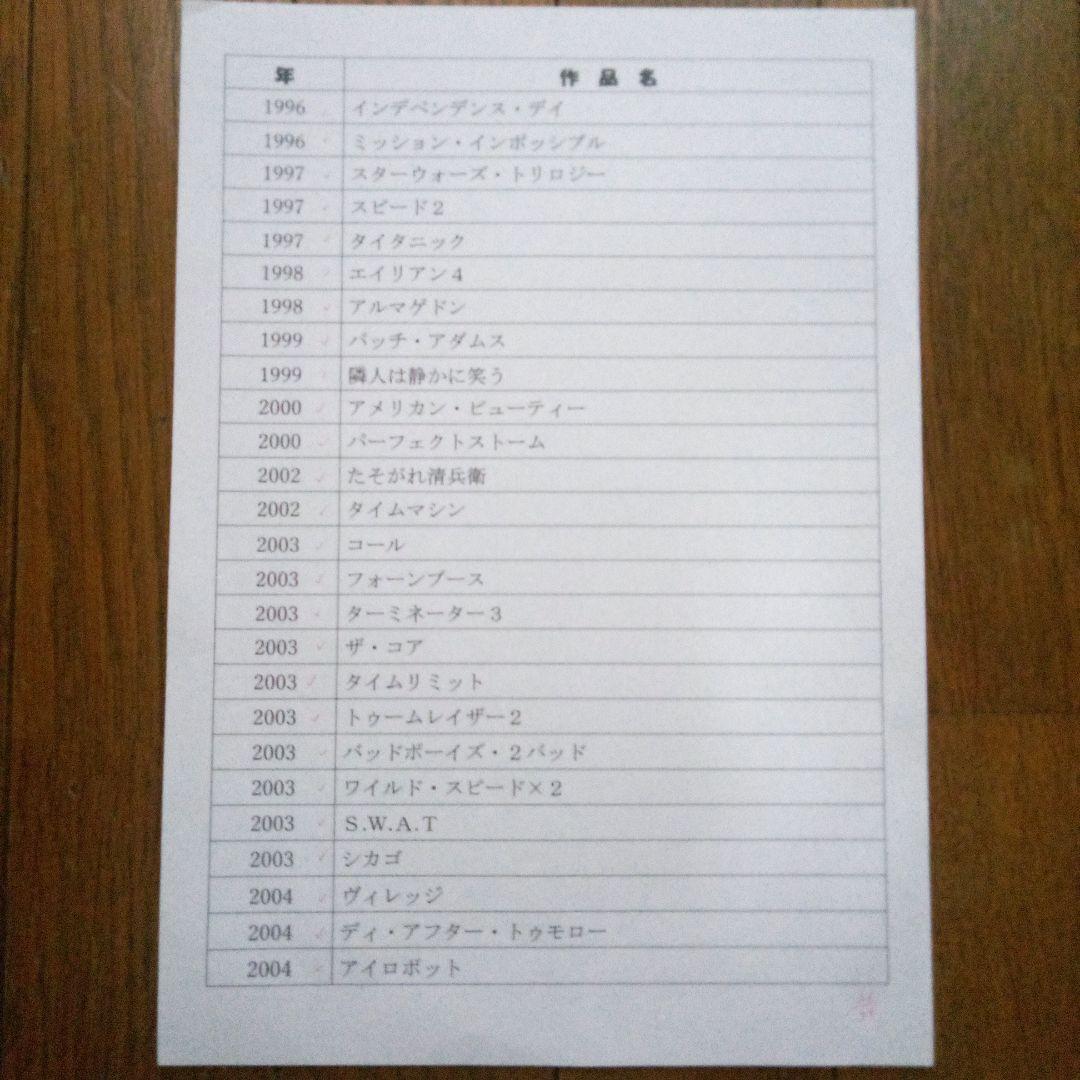 年 作品名
1996 インデペンデンス・デイ
1996 ミッション・インポッシブル
1997 スターウォーズ・トリロジー
1997 スピード２
1997 タイタニック
1998 エイリアン４
1998 アルマゲドン
1999 パッチ・アダムス
1999 隣人は静かに笑う
2000 アメリカン・ビューティー
2000 パーフェクトストーム
2002 たそがれ清兵衛
2002 タイムマシン
2003 コール
2003 フォーンブース
2003 ターミネーター３
2003 ザ・コア
2003 タイムリミット
2003 トゥームレイザー２
2003 バッドボーイズ・２バッド
2003 ワイルド・スピード×２
2003 Ｓ.Ｗ.Ａ.Ｔ
2003 シカゴ
2004 ヴィレッジ
2004 ディ・アフター・トゥモロー
2004 アイロボット